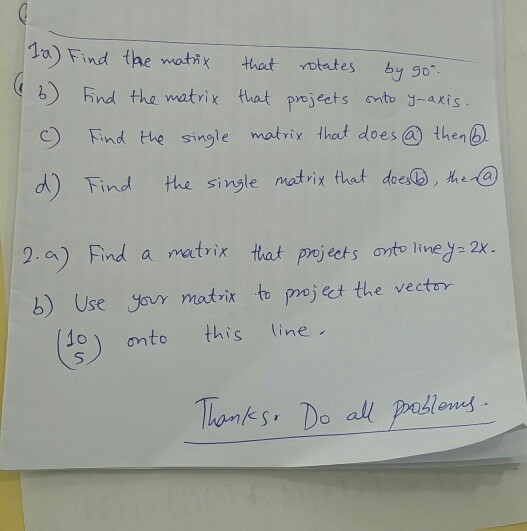 1a) Find the matrix that rotates by 90°.
b) Find the matrix that projects onto y-axis.
c) Find the single matrix that does ⓐ then ⓑ.
d) Find the single matrix that does ⓑ, then ⓐ
2.a) Find a matrix that projects onto line y = 2x.
b) Use your matrix to project the vector
(10 5) onto this line.
Thanks. Do all problems.